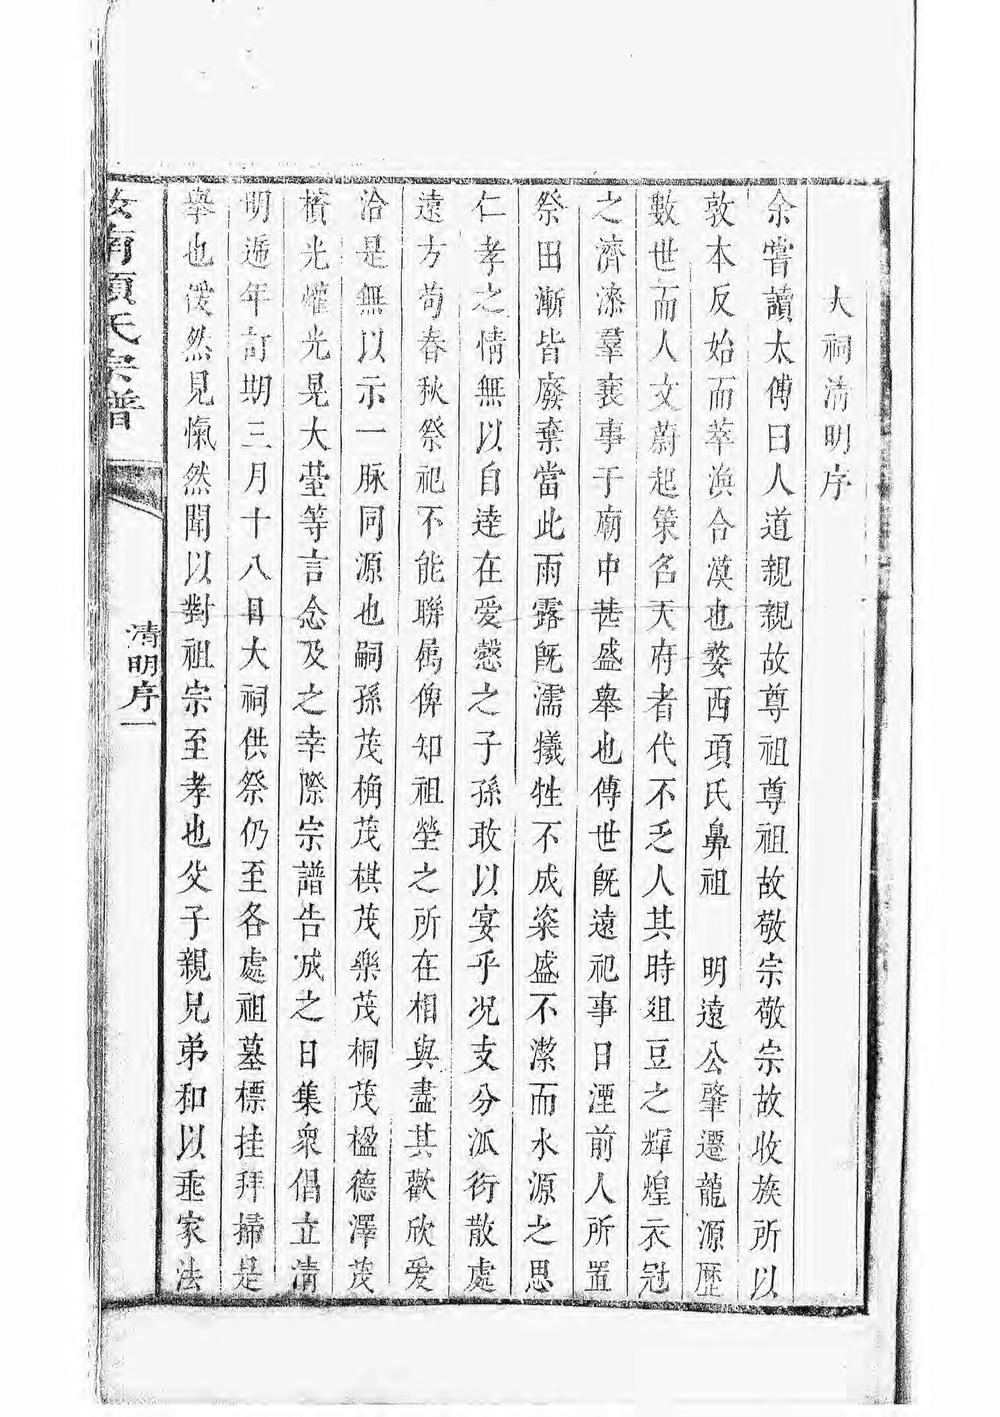 大祠清明序
余嘗讀太傅曰人道親親故尊祖尊祖故敬宗敬宗故收族所以
敦本反始而萃渙合漠也婺西項氏鼻祖　明遠公肇遷龍源歷
數世而人文蔚起策名天府者代不乏人其時俎豆之輝煌衣冠
之濟濟羣襄事于廟中甚盛舉也傳世旣遠祀事日湮前人所置
祭田漸皆廢棄當此雨露旣濡犧牲不成粢盛不潔而水源之思
仁孝之情無以自達在愛慤之子孫敢以宴乎况支分派衍散處
遠方苟春秋祭祀不能聯屬俾知祖塋之所在相與盡其歡欣愛
洽是無以示一脉同源也嗣孫茂桷茂棋茂樂茂桐茂楹德澤茂
檟光懽光晃大瑩等言念及之幸際宗譜告成之日集衆倡立清
明遞年訂期三月十八日大祠供祭仍至各處祖墓標挂拜掃是
舉也僾然見愾然聞以對祖宗至孝也父子親兄弟和以垂家法
汝南項氏宗譜
清明序一